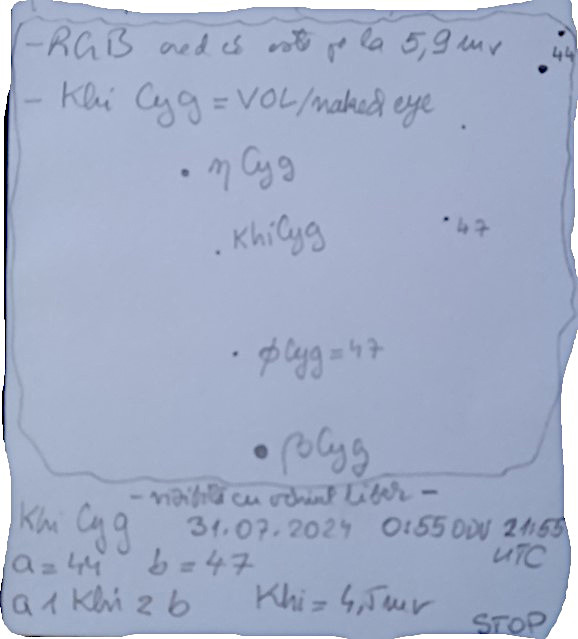 - RGB cred că este pe la 5,9 mv
44
- Khi Cyg = VOL/naked eye
η Cyg
Khi Cyg
47
φ Cyg = 47
β Cyg
- vizibilă cu ochiul liber -
Khi Cyg 31.07.2024 0:55 ODV 21:55 UTC
a = 44 b = 47
a 1 Khi 2 b Khi = 4,5 mv
STOP